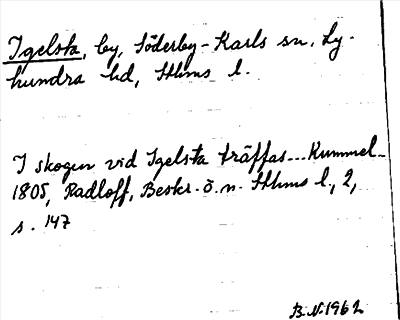 Igelsta, by, Söderby-Karls sn, Ly-
hundra hd, Sthms l.
I skogen vid Igelsta träffas... Kummel_
1805, Radloff, Beskr. ö. n. Sthms l, 2,
s. 147
B.N. 1962